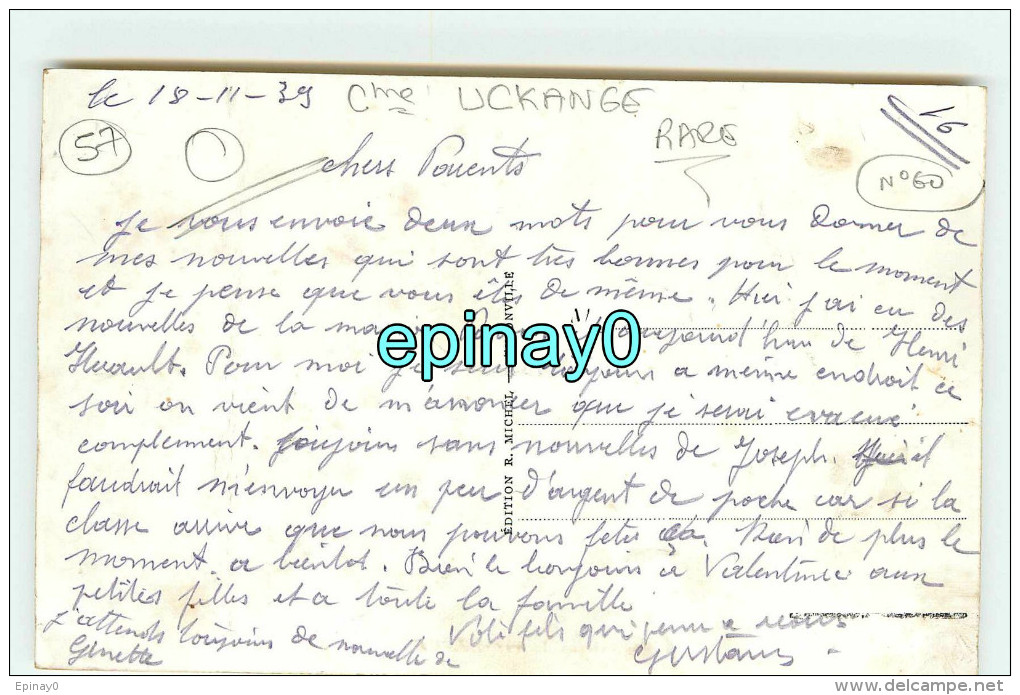 le 18-11-39 Cme UCKANGE
RARE
16
57
N°60
chers Parents
je vous envoie deux mots pour vous donner de
mes nouvelles qui sont très bonnes pour le moment
et je pense que vous êtes de même. Hier j'ai eu des
nouvelles de la aujourd'hui de Henri
Huault. Pour moi je suis toujours a même endroit ce
soir on vient de m'annoncer que je serai evacué
complement. toujours sans nouvelles de Joseph. il
faudrait m'envoyer un peu d'argent de poche car si la
classe arrive que nous pouvons feter ça. Rien de plus le
moment. a bientot. Bien le bonjours a Valentine aux
petites filles et a toute la famille
Votre fils qui pense a vous
j'attends toujours de nouvelle de
Ginette
EDITION R. MICHEL
epinay0
Epinay0
delcampe.net